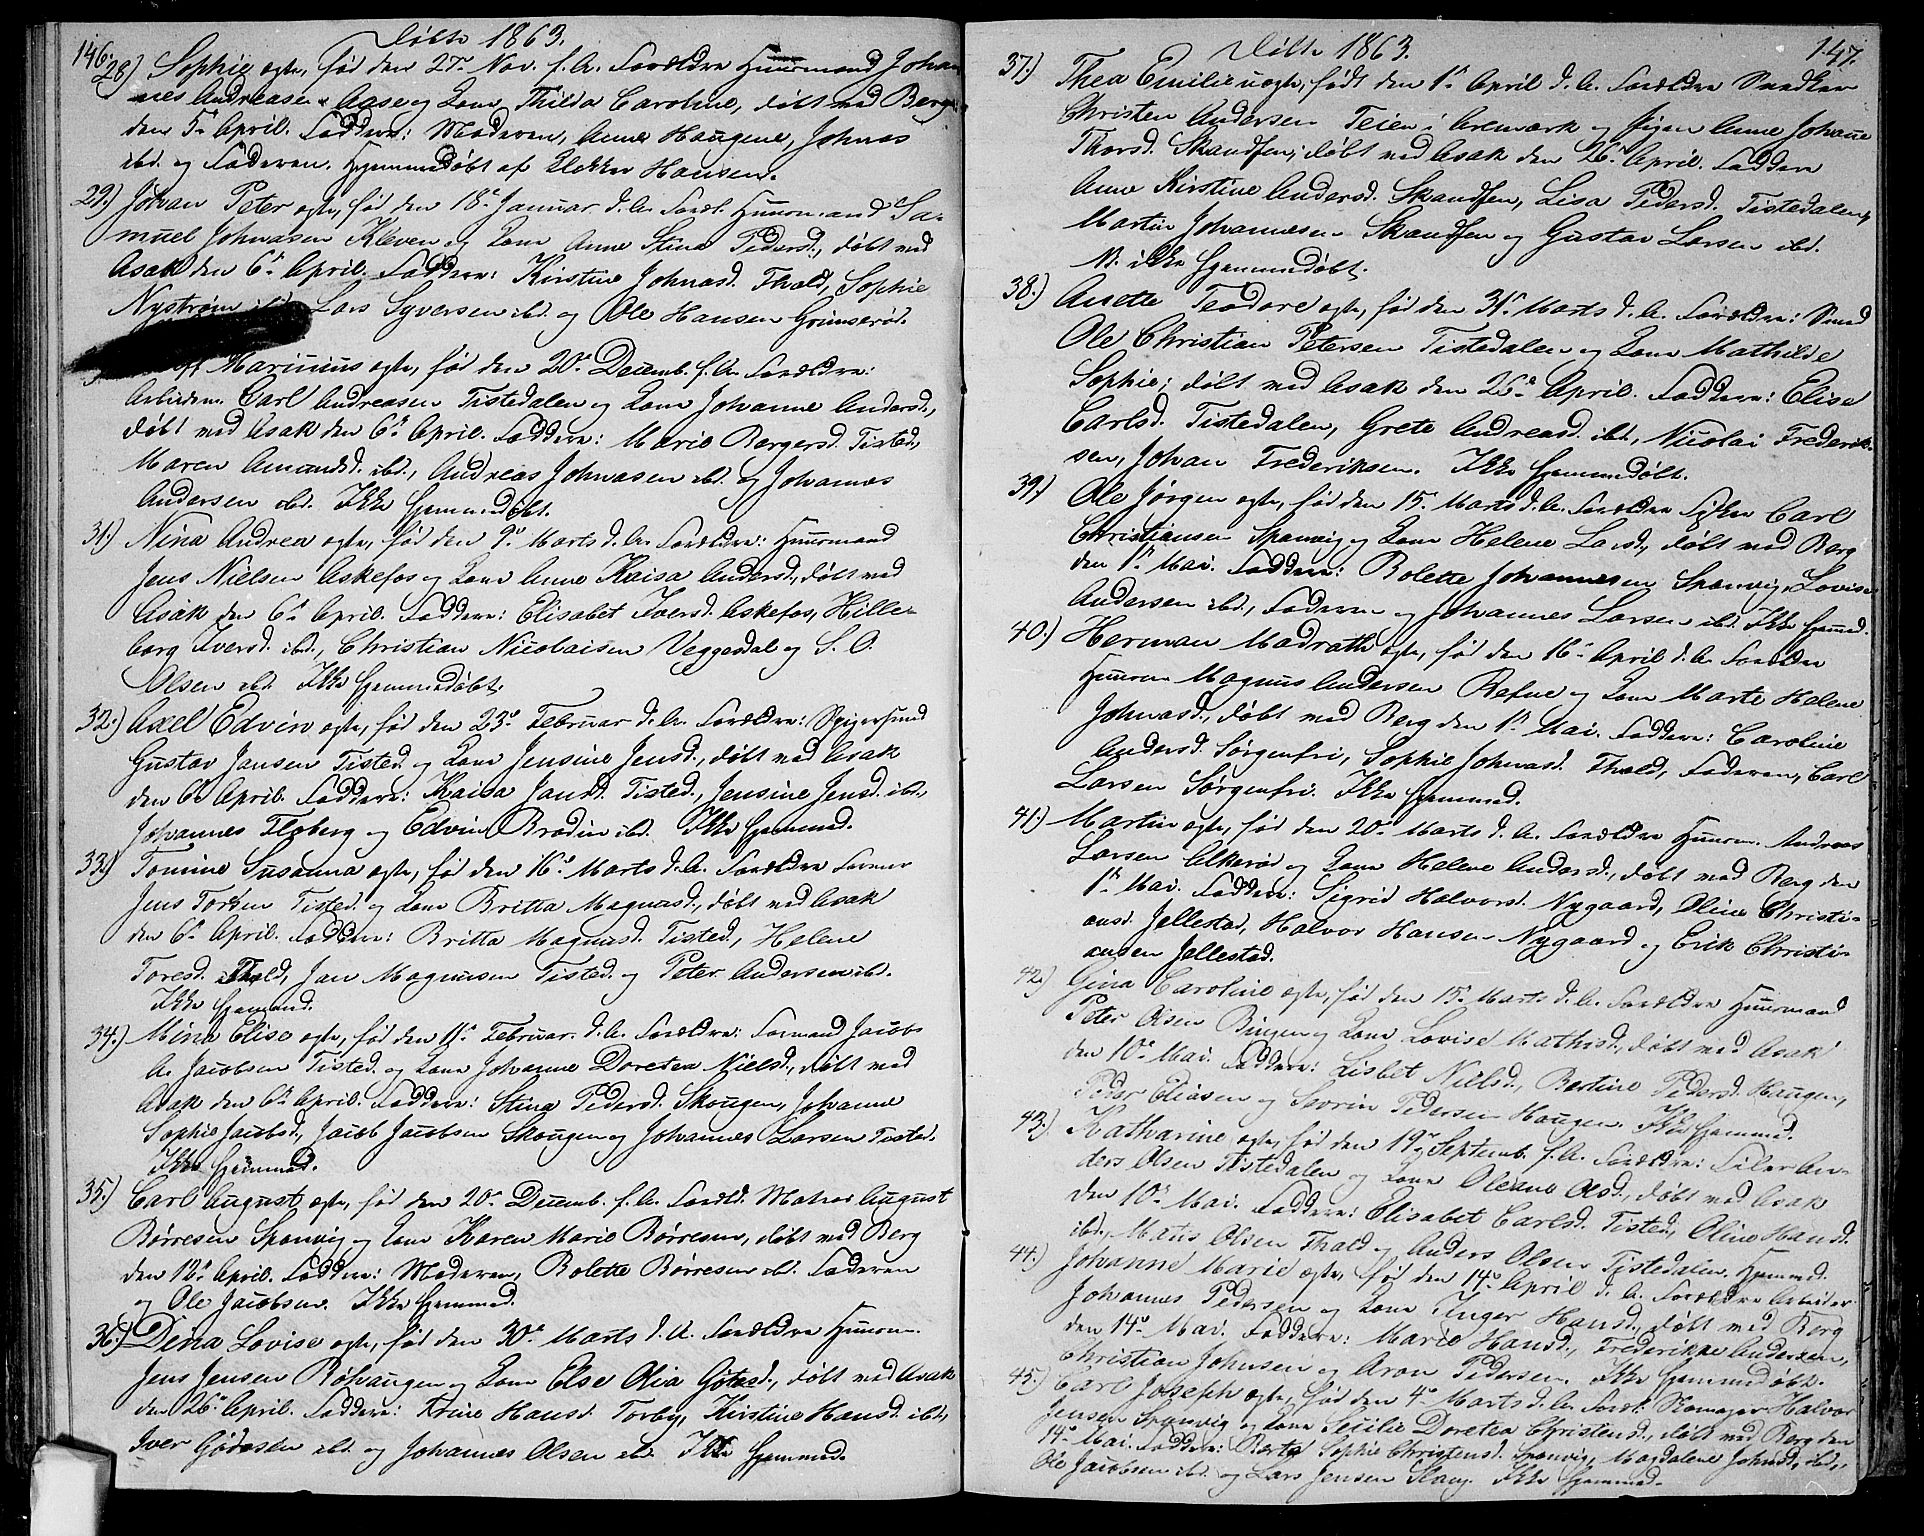 146.
Døbte 1863.
28.) Sophie ægte, fød den 27de Nov. f. A. Forældre Huusmand Johan-
nes Andreasen Aase og Kone Thilda Caroline, døbt ved Berg
den 5te April. Faddere: Moderen, Anne Haugene, Johnas
ibd. og Faderen. Hjemmedøbt af Klokker Hansen.
29.) Johan Peter ægte, fød den 18de Januar d. A. Foræl. Huusmand Sa-
muel Johnasen Kleven og Kone Anne Stina Pedersd., døbt ved
Asak den 6te April. Faddere: Kirstine Johnasd. Thvld, Sophie
Nystrøm ibd. Lars Syversen ibd. og Ole Hansen Grimserød.
Marinius ægte, fød den 20de Decemb. f. A. Forældre:
Arbeidsm. Carl Andreasen Tistedalen og Kone Johanne Andersd.,
døbt ved Asak den 6te April. Faddere: Marie Borgersd. Tisted.,
Maren Amundsd. ibd., Andreas Johnasen ibd. og Johannes
Andersen ibd. Ikke hjemmedøbt.
31.) Nina Andrea ægte, fød den 9de Marts d. A. Forældre: Huusmand
Jens Nielsen Askefos og Kone Anne Kaisa Andersd., døbt ved
Asak den 6te April. Faddere: Elisabet Iversd. Askefos, Hille-
borg Iversd. ibd., Christian Nicolaisen Veggesdal og S. O.
Olsen ibd. Ikke hjemmedøbt.
32.) Axel Edvin ægte, fød den 23de Februar d. A. Forældre: Spigersmed
Gustav Jansen Tisted. og Kone Jensine Jensd., døbt ved Asak
den 6te April. Faddere: Kaisa Jansd. Tisted., Jensine Jensd. ibd.,
Johannes Floberg og Edvin Brodin ibd. Ikke hjemmed.
33.) Tomine Susanna ægte, fød den 16de Marts d. A. Forældre Former
Jens Torsen Tisted. og Kone Britta Magnusd., døbt ved Asak
den 6te April. Faddere: Britta Magnusd. Tisted., Helene
Toresd. Thvld, Jan Magnusen Tisted. og Peter Andersen ibd.
Ikke hjemmed.
34.) Mina Elise ægte, fød den 11te Februar d. A. Forældre: Formand Jacob
A. Jacobsen Tisted. og Kone Johanne Doretea Nielsd., døbt ved
Asak den 6te April. Faddere: Stina Pedersd. Skougen, Johanne
Sophie Jacobsd., Jacob Jacobsen Skougen og Johannes Larsen Tisted.
Ikke hjemmed.
35.) Carl August ægte, fød den 20de Decemb. f. A. Foræld. Matros August
Børresen Sponvig og Kone Karen Marie Børresen, døbt ved Berg
den 12te April. Faddere: Moderen, Bolette Børresen ibd. Faderen
og Ole Jacobsen. Ikke hjemmed.
36.) Dina Lovise ægte, fød den 30te Marts d. A. Forældre Huusm.
Jens Jensen Røhaugen og Kone Else Olia Gotesd., døbt ved Asak
den 26de April. Faddere: Trine Hansd. Torby, Kirstine Hansd. ibd.,
Iver Gødesen ibd. og Johannes Olsen ibd. Ikke hjemmed.
147.
Døbte 1863.
37.) Thea Emilie uægte, født den 1ste April d. A. Forældre Snedker
Christen Andersen Teien i Aremark og Pigen Anne Johanne
Thorsd. Skandsen, døbt ved Asak den 26de April. Faddere
Anne Kirstine Andersd. Skandsen, Lisa Pedersd. Tistedalen,
Martin Johannesen Skandsen og Gustav Larsen ibd.
N. ikke hjemmedøbt.
38.) Anette Teodore ægte, fød den 31te Marts d. A. Forældre: Smed
Ole Christian Petersen Tistedalen og Kone Mathilde
Sophie; døbt ved Asak den 26de April. Faddere: Elise
Carlsd. Tistedalen, Grete Andreasd. ibd., Nicolai Frederik-
sen, Johan Frederiksen. Ikke hjemmedøbt.
39.) Ole Jørgen ægte, fød den 15de Marts d. A. Forældre Fisker Carl
Christiansen Sponvig og Kone Helene Larsd., døbt ved Berg
den 1ste Mai. Faddere: Bolette Johannesen Sponvig, Lovise
Andersen ibd., Faderen og Johannes Larsen ibd. Ikke hjemmed.
40.) Herman Madrath ægte, fød den 16de April d. A. Forældre
Huusm. Magnus Andersen Refne og Kone Marte Helene
Johnasd., døbt ved Berg den 1ste Mai. Faddere: Caroline
Andersd. Sørgenfri, Sophie Johnasd. Thvld, Faderen, Carl
Larsen Sørgenfri. Ikke hjemmed.
41.) Martin ægte, fød den 20de Marts d. A. Forældre Huusm. Andreas
Larsen Akerød og Kone Helene Andersd., døbt ved Berg den
1ste Mai. Faddere: Sigrid Halvorsd. Nygaard, Oline Christi-
ansd. Jellestad, Halvor Hansen Nygaard og Erik Christi-
ansen Jellestad.
42.) Gina Caroline ægte, fød den 15de Marts d. A. Forældre Huusmand
Peter Olsen Bingen og Kone Lovise Mathisd., døbt ved Asak
den 10de Mai. Faddere: Lisbet Nielsd., Bertine Pedersd. Haugen,
Peder Eliasen og Severin Pedersen Haugen. Ikke hjemmed.
43.) Katharine ægte, fød den 19de Septemb. f. A. Forældre: Filer An-
ders Olsen Tistedalen og Kone Oleane Olsd., døbt ved Asak
den 10de Mai. Faddere: Elisabet Carlsd. Tisted., Oline Hansd.
ibd., Mans Olsen Thvld og Anders Olsen Tistedalen. Hjemmed.
44.) Johanne Marie ægte, fød den 14de April d. A. Forældre Arbeider
Johannes Pedersen og Kone Inger Hansd., døbt ved Berg
den 14de Mai. Faddere: Marie Hansd., Frederikke Andersen,
Christian Johnsen og Aron Pedersen. Ikke hjemmedøbt.
45.) Carl Joseph ægte, fød den 4de Marts d. A. Foræl. Skomager Halvor
Jensen Sponvig og Kone Cecilie Doretea Christensd., døbt ved Berg den
14de Mai. Faddere: Berte Sophie Christensd. Sponvig, Magdalene Johnsd. ibd.,
Ole Jacobsen ibd. og Lars Jensen Slang. Ikke hjemmed.